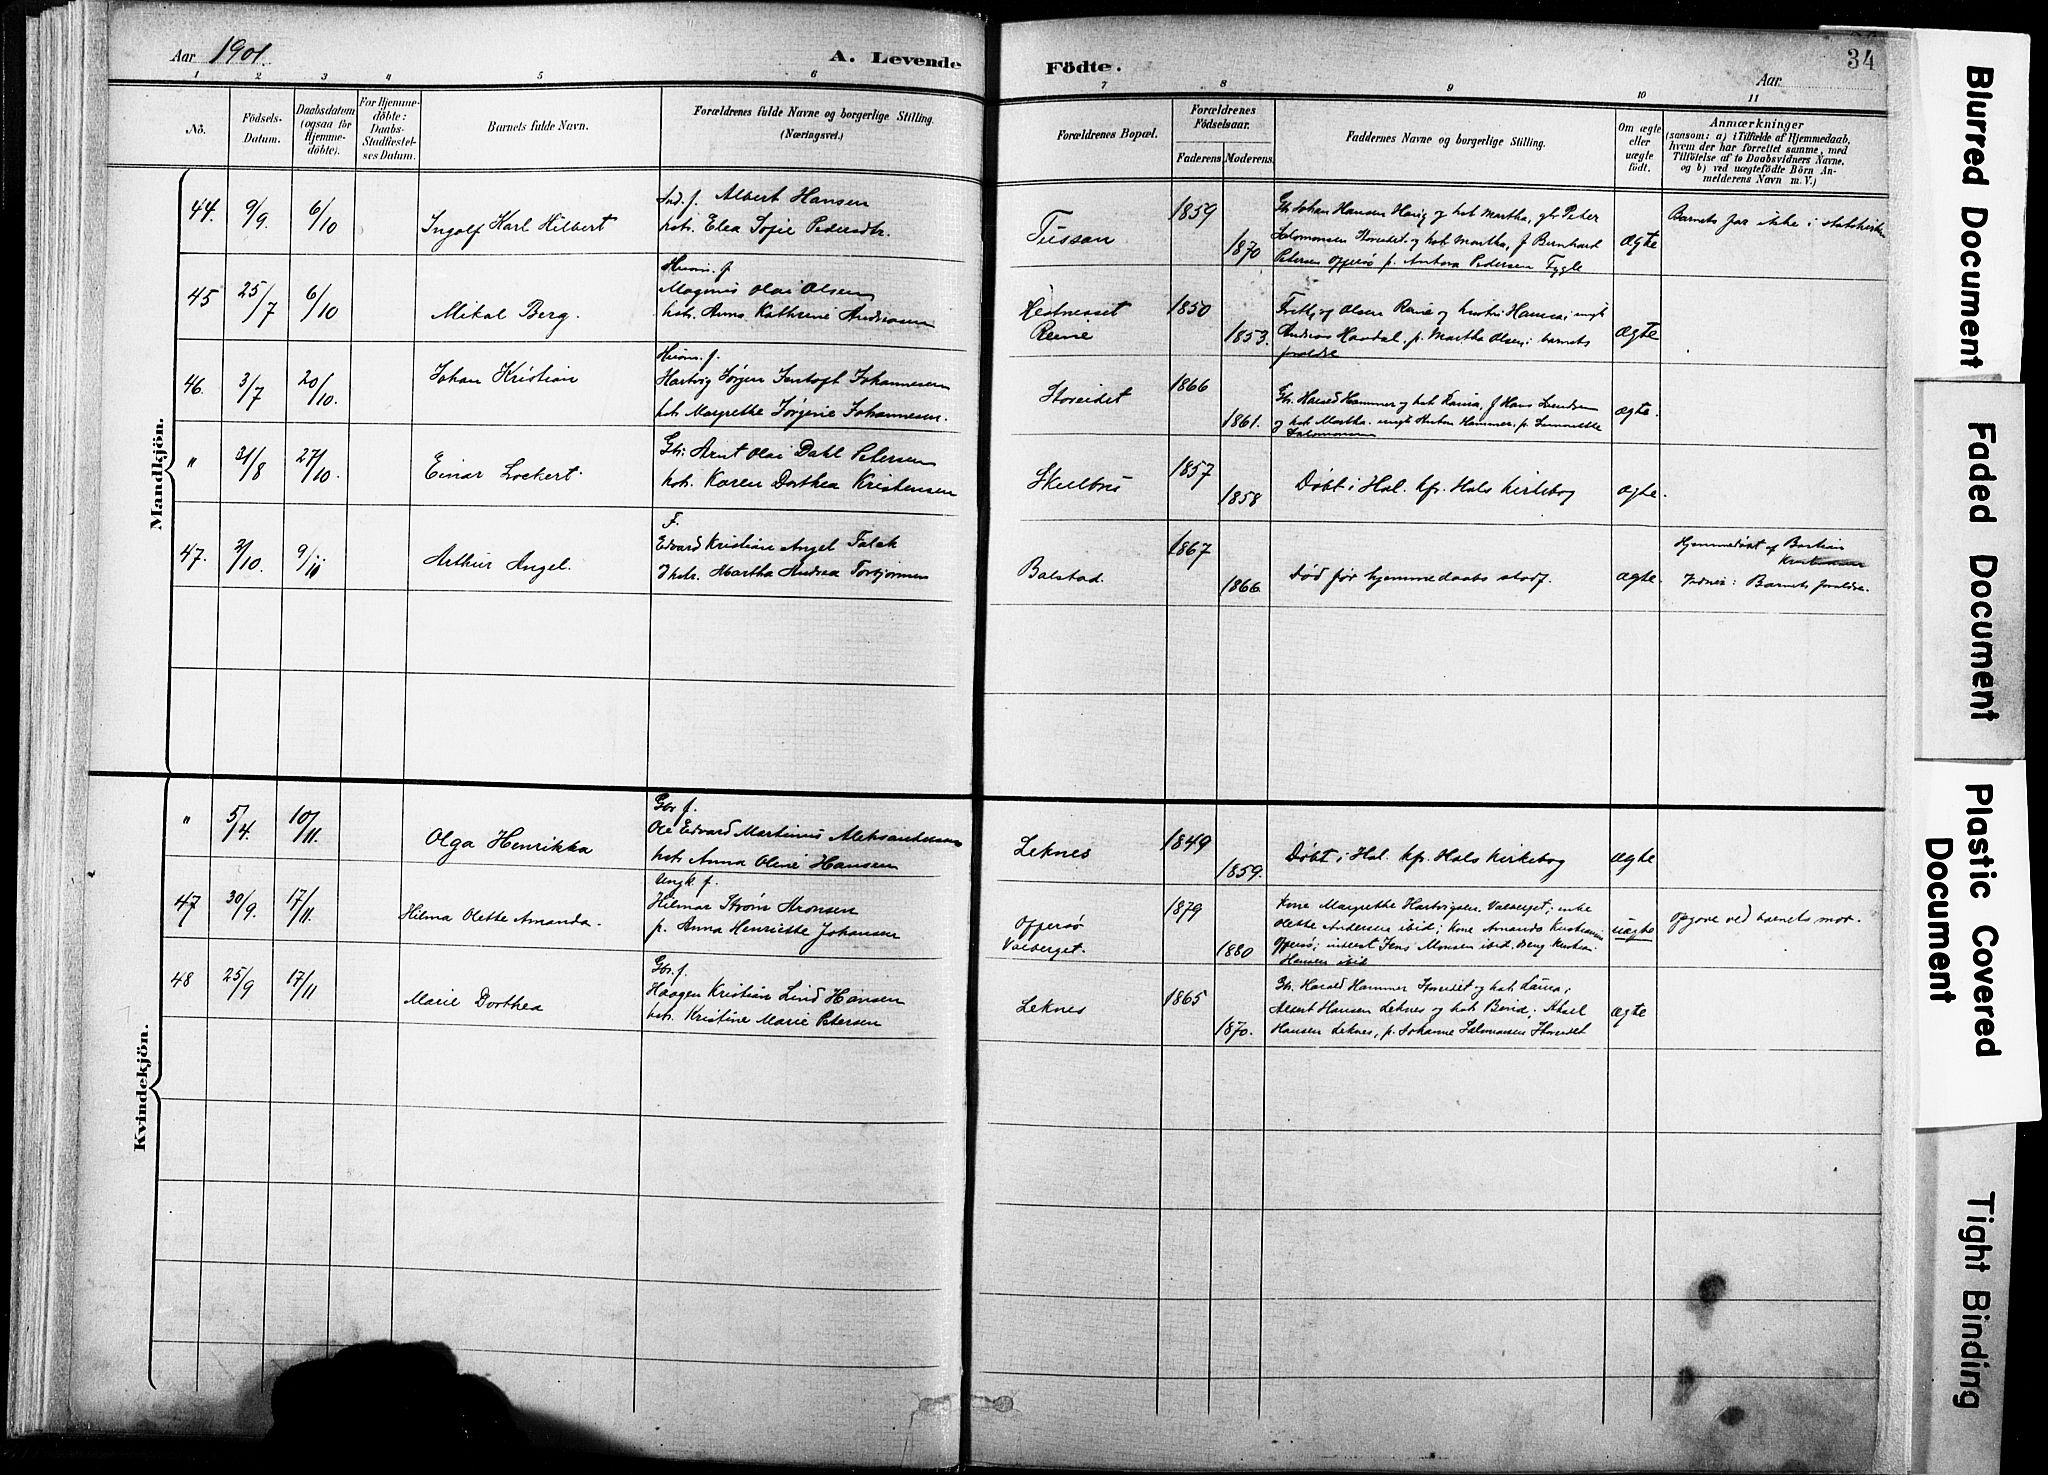 Aar 1901.
A. Levende Födte.
Aar
34
1 2 3 4 5 6 7 8 9 10 11
Nò.
Födsels-Datum.
Daabsdatum (ogsaa for Hjemme-döbte).
For Hjemme-döbte: Daabs-Stadfæstel-ses Datum.
Barnets fulde Navn.
Forældrenes fulde Navne og borgerlige Stilling. (Næringsvei.)
Forældrenes Bopæl.
Forældrenes Födselsaar.
Faderens. Moderens.
Faddernes Navne og borgerlige Stilling.
Om ægte eller uægte födt.
Anmærkninger
(saasom: a) i Tilfælde af Hjemmedaab,
hvem der har forrettet samme, med
Tilföielse af to Daabsvidners Navne,
og b) ved uægtefödte Börn An-
melderens Navn m. V.)
Mandkjön.
44. 9/9. 6/10 Ingolf Karl Hilbert
Ind. f. Albert Hansen
hstr. Elea Sofie Pedersdtr.
Tussan 1859 1870
Gbr Johan Hansen Haug og hst Martha, gbr Peter
Salomonsen Storeidet og hst Martha, f Bernhard
Petersen Offersø p. Antora Pedersen Fygle
ægte
Barnets far ikke i statskirken
45 25/7 6/10 Mikal Berg.
Husm. f
Magnus Olai Olsen
hstr. Anna Kathrine Andreasen
Hestnesset
Reine
1850 1853.
Olsen Reine og hustru Hanna; ungk
Andreas Havdal, p. Martha Olsen; barnets
foraldre
ægte
46. 3/7 20/10. Johan Kristian
Husm. f.
Hartvig Jørgen Jentoft Johannesen
hst Margrethe Jørgine Johannesen.
Storeidet 1866 1861.
Gbr. Harald Hammer og hst Laura, f Hans
og hst Martha. ungk Anton Hammer. p.
Salomonsen
ægte.
" 31/8 27/10. Einar Lockert.
Gbr: Arnt Olai Dahl Petersen
hst. Karen Dorthea Kristensen
Skulbru 1857 1858
Døbt i Hol. kfr. Hols kirkebog
ægte.
47. 2/10. 9/11 Arthur Angel.
F.
Edvard Kristian Angel Falck
hstr. Martha Andrea Torbjørnsen
Balstad. 1867 1866.
Død før hjemmedaabs stadf.
ægte.
Hjemmedøbt af Bastian
Kristiansen
Vidner: Barnets forældre.
Kvindekjön.
" 5/4. 10/11. Olga Henrikka
Gbr f.
Ole Edvard Martinus Aleksandersen
hst. Anna Oline Hansen
Leknes 1849 1859.
Døbt i Hol. kfr. Hols kirkebog
ægte
47 30/9. 17/11. Hilma Olette Amanda.
Ungk f.
Hilmar Strøm Aronsen
p. Anna Henriette Johansen
Offersø
Valberget.
1879 1880
Kone Margrethe Hartvigsen Valberget; enke
Olette Andersen ibid; Kone Amanda Kristiansen
Offersø; inderst Jens Monsen ibid. Dreng Kristian
Hansen ibid
uægte
Opgave ved barnets mor.
48 25/9 17/11 Marie Dorthea
Gbr. f.
Haagen Kristian Lind Hansen
hst. Kristine Marie Petersen
Leknes 1865 1870.
Gbr. Harald Hammer Storeidet og hst. Laura;
Albert Hansen Leknes og hst Berid; Aksel
Hansen Leknes, p. Johanne Salomonsen Storeidet
ægte
Blurred Document
Faded Document
Plastic Covered Document
Tight Binding